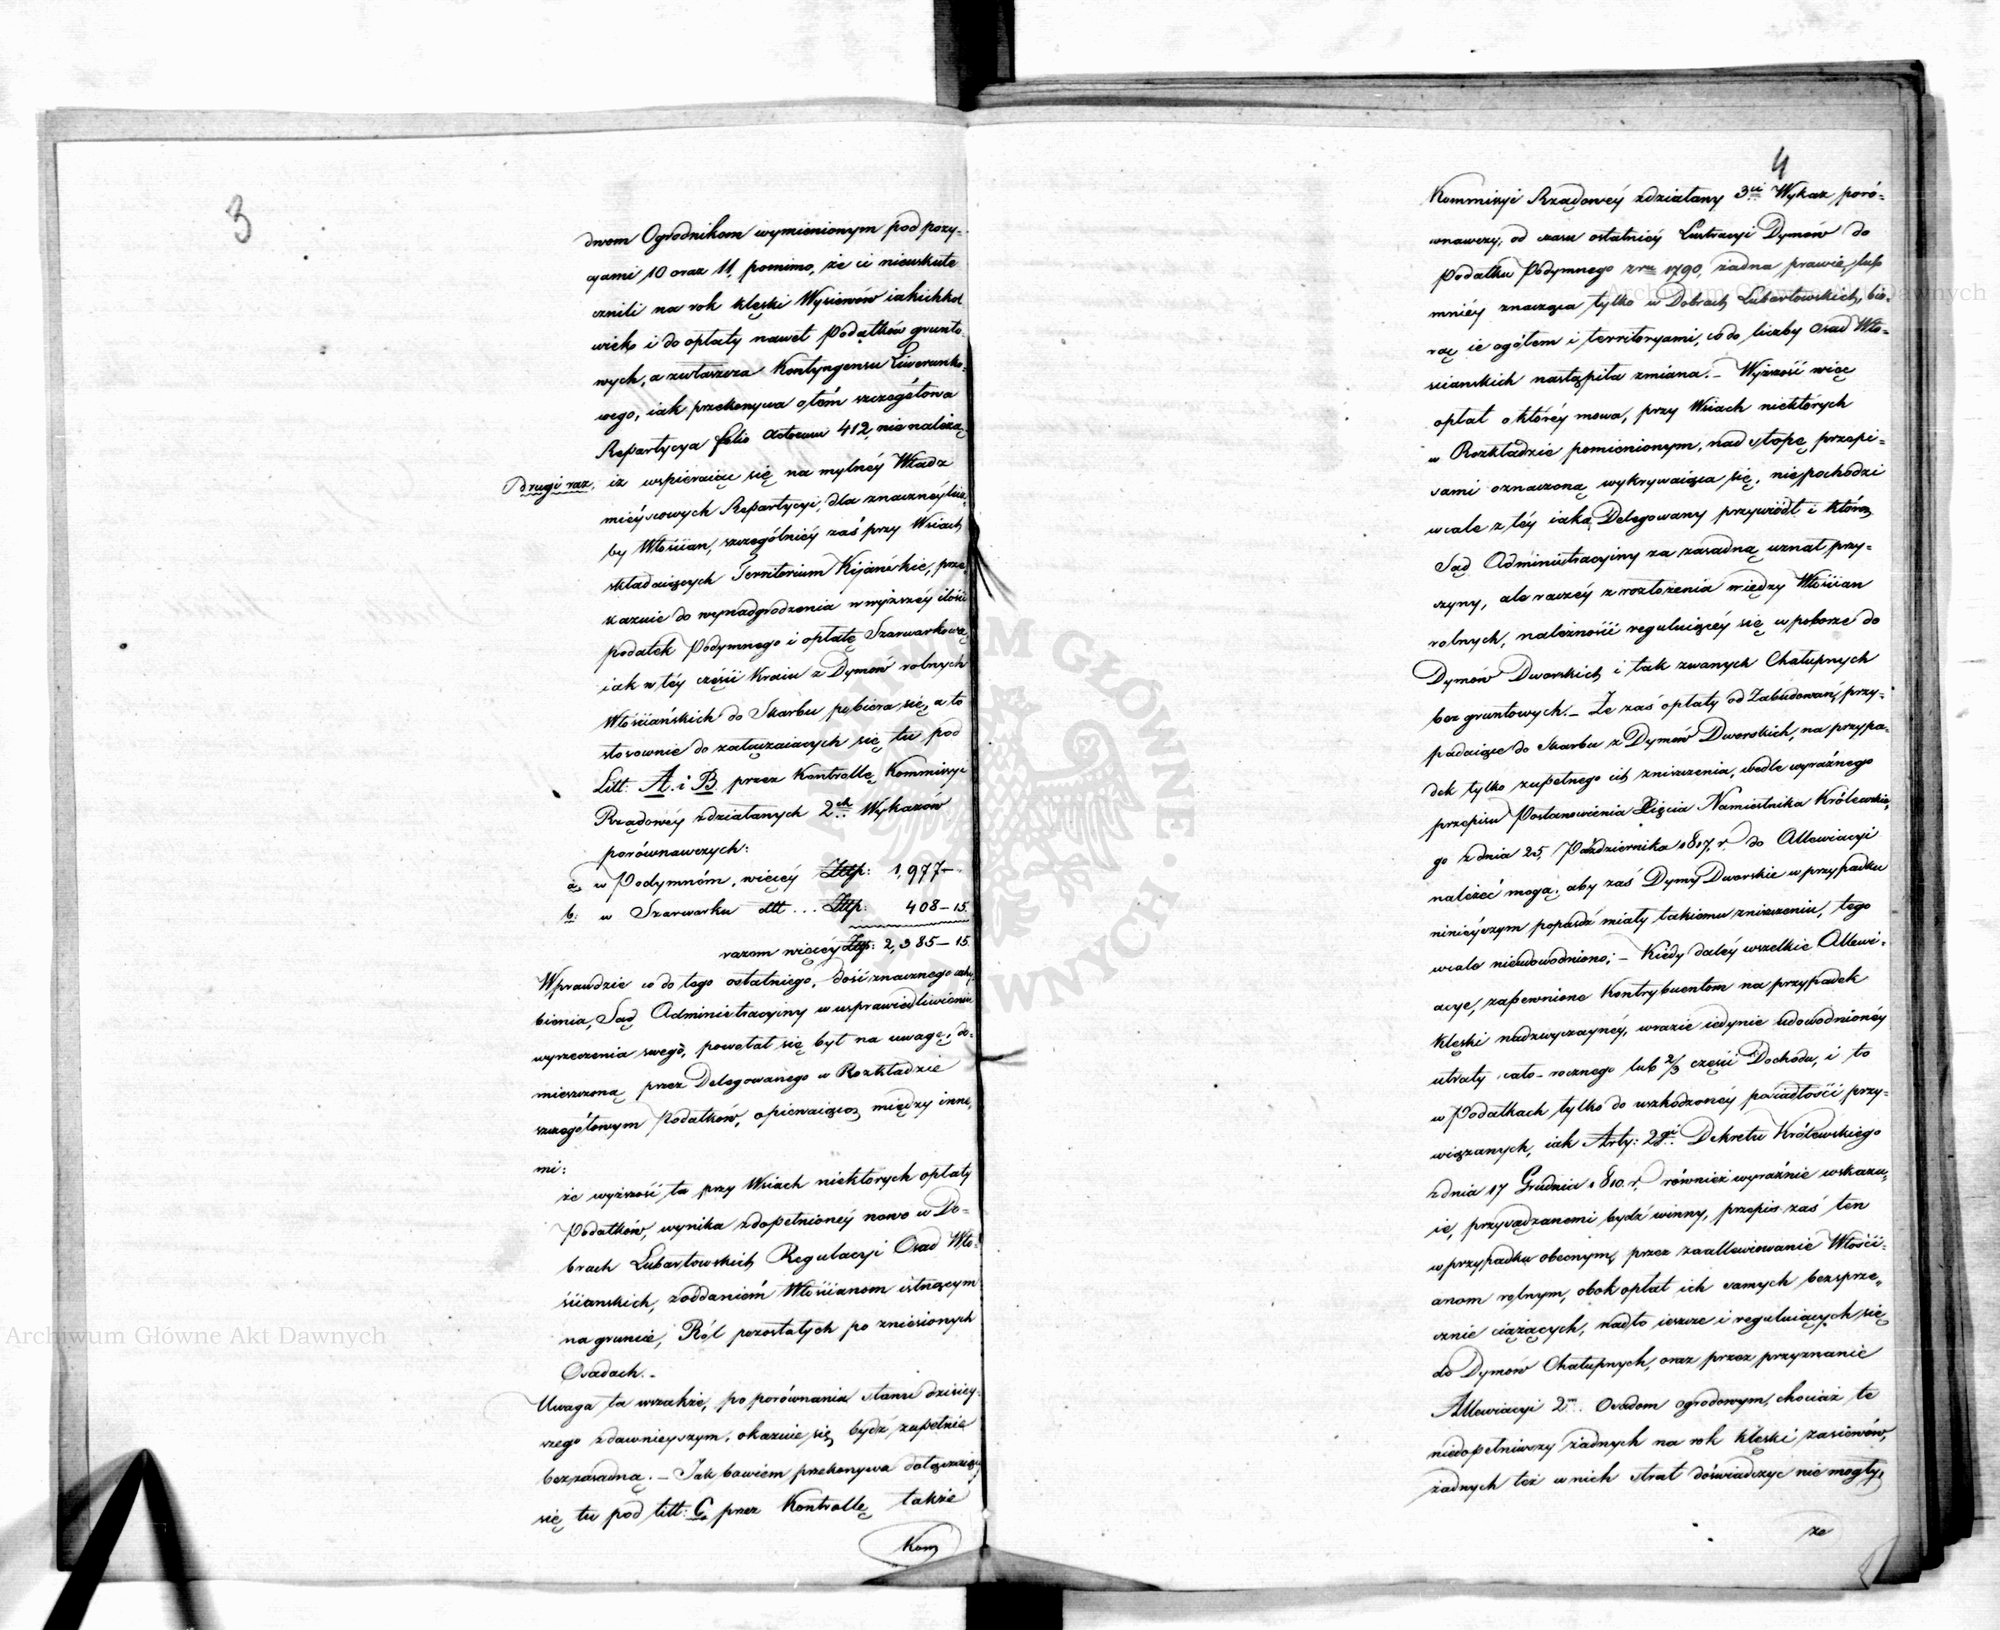 3
dwom Ogrodnikom wymienionym pod pozy-
cyami 10 oraz 11, pomimo, że ci nieuskute
cznili na rok klęski Wysiewów iakichkol
wiek, i do opłaty nawet Podatków grunto
wych, a zwłaszcza Kontyngensu Liwerunko-
wego, iak przekonywa otém szczegółowa
Repartycya folio Actorum 412, nie należą.
Drugi raz, iż wspieraiąc się na mylnéy Władz
mieyscowych Repartycyi, dla znacznéy licz
by Włościan, szczególniéy zaś przy Wsiach
składaiących Territorium Kijańskie, prze
kazuie do wynadgrodzenia w wyższéy ilości
podatek Podymnego i opłatę Szarwarkową,
iak w téy części Kraiu z Dymów rolnych
Włościańskich do Skarbu pobiera się, a to
stosownie do załączaiących się tu pod
Litt: A. i B. przez Kontrollę Kommissyi
Rządowéy zdziałanych 2ch Wykazów
porównawczych:
a, w Podymném, więcéy Złtp: 1,977-
b. w Szarwarku dtt ... Złtp: 408-15.
razem więcéy Złtp: 2,385-15.
Wprawdzie co do tego ostatniego, dość znacznego uchy
bienia, Sąd Administracyiny w usprawiedliwieniu
wyrzeczenia swego, powołał się był na uwagę, do-
mieszczoną przez Delegowanego w Rozkładzie
szczegółowym Podatków, opiewaiącą między inne,
mi:
że wyższość ta przy Wsiach niektorych opłaty
Podatków, wynika zdopełnionéy nowo w Do-
brach Lubartowskich Regulacyi Osad Wło-
ściańskich, zoddaniém Włościanom istnącym
na gruncie, Ról pozostałych po zniesionych
Osadach.-
Uwaga ta wszakże, po porównaniu stanu dzisiey-
szego zdawnieyszym, okazuie się bydź zupełnie
bezzasadną.- Jak bowiem przekonywa dołączaiący
się tu pod litt: C, przez Kontrollę także
Kom
4
Kommissyi Rządowéy zdziałany 3ci Wykaz poró-
wnawczy, od czasu ostatniéy Lustracyi Dymów do
Podatku Podymnego z ru 1790, żadna prawie, lub
mniéy znacząca tylko w Dobrach Lubartowskich, bio-
rąc ie ogółem i territoryami, co do liczby Osad Wło-
ściańskich nastąpiła zmiana.- Wyższość więc
opłat o któréy mowa, przy Wsiach niektórych
w Rozkładzie pomienionym, nad stopę przepi-
sami oznaczoną wykrywaiąca się, niepochodzi
wcale z téy iaką Delegowany przywiódł i którą
Sąd Administracyiny za zasadną uznał przy-
czyny, ale raczéy z rozłożenia między Włościan
rolnych, należności reguluiącéy się w poborze do
Dymów Dworskich i tak zwanych Chałupnych
bezgruntowych.- Że zaś opłaty od Zabudowań, przy-
padaiące do Skarbu z Dymów Dworskich, na przypa-
dek tylko zupełnego ich zniszczenia, wedle wyraźnego
przepisu Postanowienia Xięcia Namiestnika Królewskie,
go z dnia 25, Października 1817, r. do Allewiacyi
należeć mogą; aby zaś Dymy Dworskie w przypadku
niniéyszym popadź miały takiemu zniszczeniu, tego
wcale nieudowodniono;- Kiedy daléy wszelkie Allewi-
acye, zapewnione Kontrybuentom na przypadek
klęski nadzwyczaynéy, wrazie iedynie udowodnionéy
utraty cało-rocznego lub 2/3 części Dochodu, i to
w Podatkach tylko do uszkodzonéy posiadłości przy-
wiązanych, iak Arty: 2gi. Dekretu Królewskiego
z dnia 17 Grudnia 1810. r, również wyraźnie wskazu,
ie, przysądzanemi bydź winny, przepis zaś ten
w przypadku obecnym, przez zaallewiowanie Włości-
anom rolnym, obok opłat ich samych bezsprze-
cznie ciążących, nadto ieszcze i reguluiących się
do Dymów Chałupnych, oraz przez przyznanie
Allewiacyi 2m. Osadom ogrodowym, chociaż te
niedopełniwszy żadnych na rok klęski zasiewów,
żadnych też w nich strat doświadczyć nie mogły,
ze
Archiwum Główne Akt Dawnych
Archiwum Główne Akt Dawnych
ARCHIWUM GŁÓWNE AKT DAWNYCH